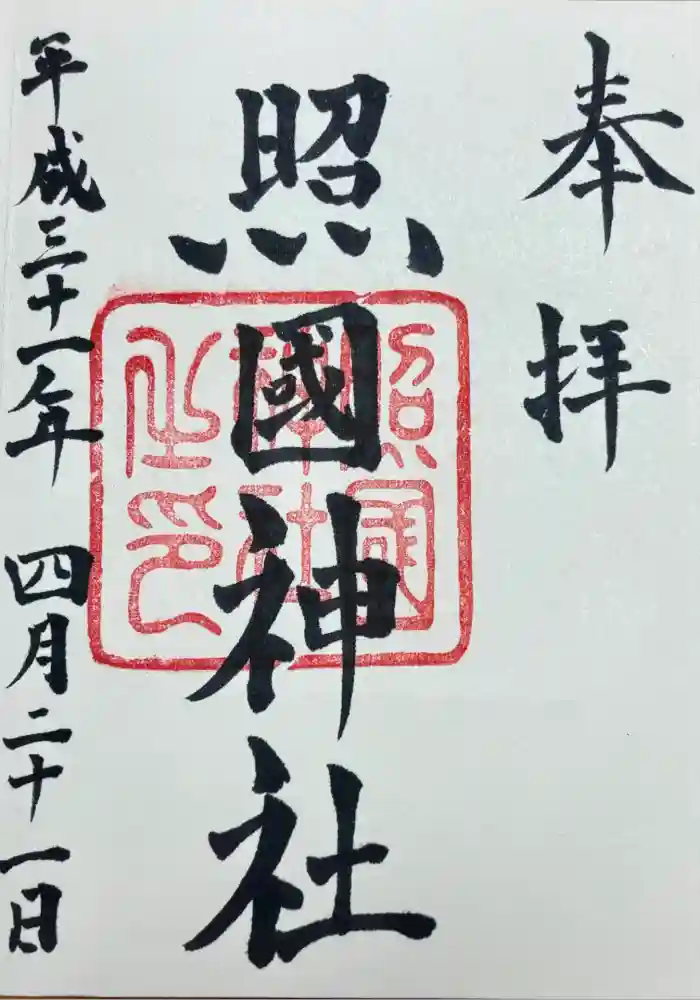 奉拝
照國神社
照国神社之印
平成三十一年 四月二十一日